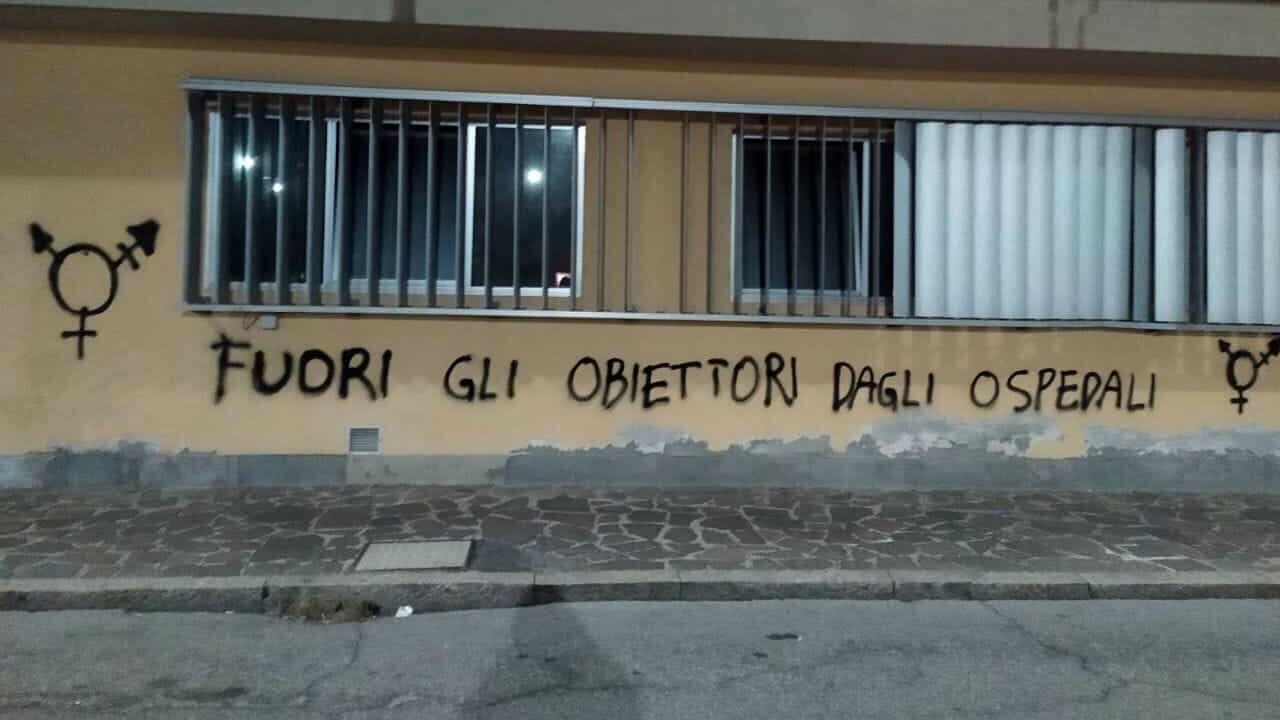 FUORI GLI OBIETTORI DAGLI OSPEDALI